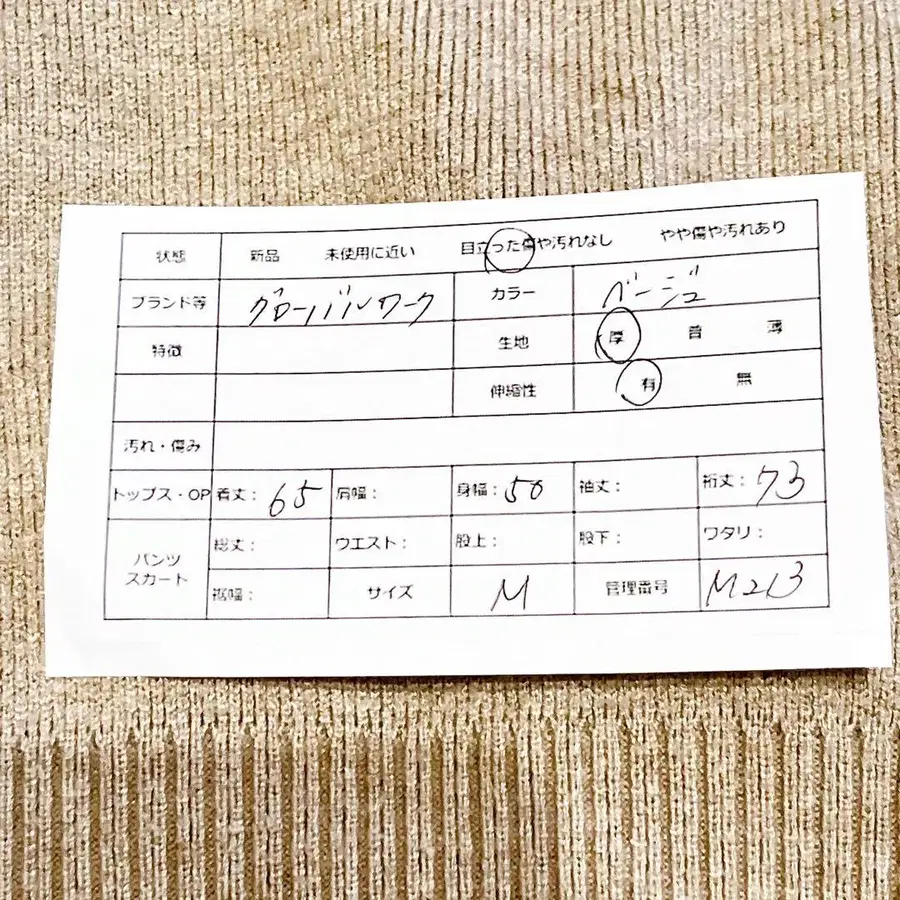 状態 新品 未使用に近い 目立った傷や汚れなし やや傷や汚れあり
ブランド等 グローバルワーク カラー ベージュ
特徴 生地 厚 普 薄
伸縮性 有 無
汚れ・傷み
トップス・OP 着丈: 65 肩幅: 身幅: 50 袖丈: 裄丈: 73
パンツ スカート 総丈: ウエスト: 股上: 股下: ワタリ:
裾幅: サイズ M 管理番号 M213